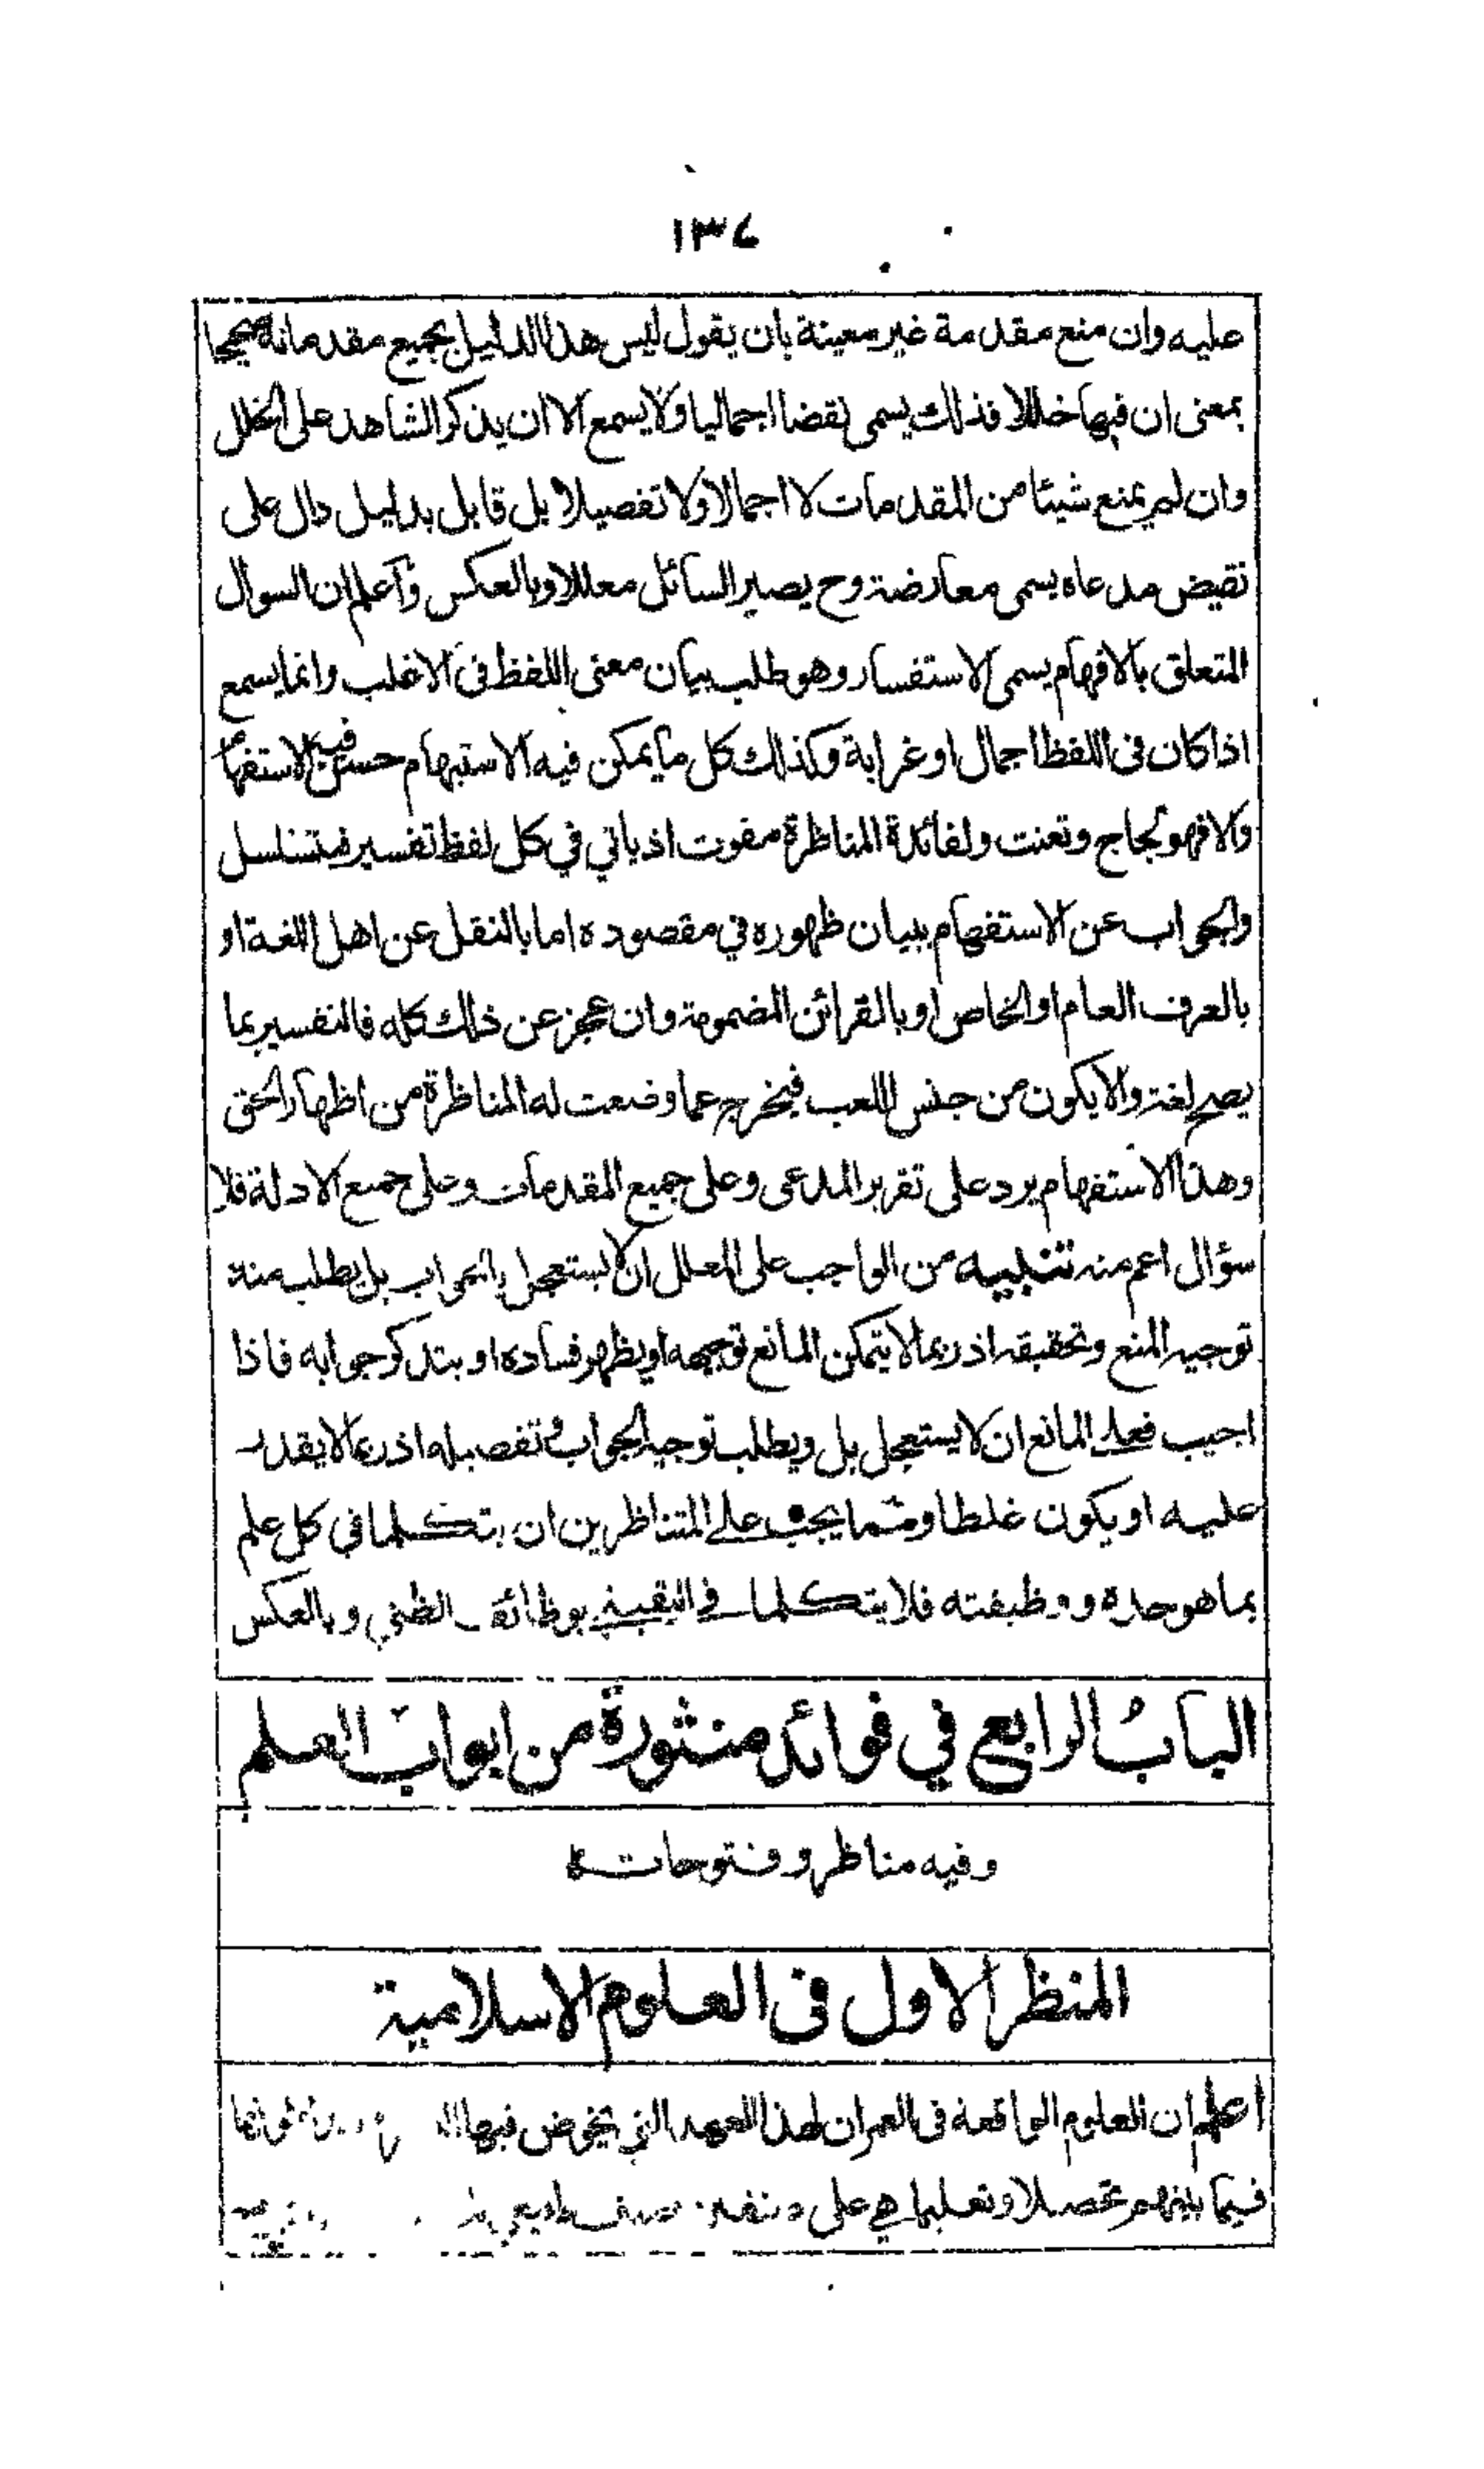 ١٣٤
عليه وان منع مقدمة غير معينة بان يقول ليس هذا الدليل بجميع مقدماته صحيحا
بمعنى ان فيها خللا فذلك يسمى نقضا اجماليا ولا يسمع الا ان يذكر الشاهد على الخلل
وان لم يمنع شيئا من المقدمات لا اجمالا ولا تفصيلا بل قابل بدليل دال على
نقيض مدعاه يسمى معارضة وح يصير السائل معللا وبالعكس واعلم ان السوال
المتعلق بالافهام يسمى الاستفسار وهو طلب بيان معنى اللفظ فى الاغلب وانما يسمع
اذا كان فى اللفظ اجمال او غرابة وكذلك كل ما يمكن فيه الاستبهام حسن فيه الاستفهام
والا فهو لجاج وتعنت ولفائدة المناظرة مفوت اذ ياتي في كل لفظ تفسير فيتسلسل
والجواب عن الاستفهام ببيان ظهوره في مقصوده اما بالنقل عن اهل اللغة او
بالعرف العام او الخاص او بالقرائن المضمومة وان عجز عن ذلك كله فالتفسير بما
يصح لغة والا يكون من جنس اللعب فيخرج عما وضعت له المناظرة من اظهار الحق
وهذا الاستفهام يرد على تقرير المدعى وعلى جميع المقدمات وعلى جميع الادلة فلا
سؤال اعم منه تنبيه من الواجب على المعلل ان لا يستعجل بالجواب بل يطلب منه
توجيه المنع وتحقيقه اذ ربما لا يتمكن المانع توجيهه او يظهر فساده او يتذكر جوابه فاذا
اجيب فعلى المانع ان لا يستعجل بل ويطلب توجيه الجواب وتفصيله اذ ربما لا يقدر
عليه او يكون غلطا ومما يجب على المتناظرين ان يتكلما في كل علم
بما هو حده ووظيفته فلا يتكلما في اليقيني بوظائف الظني وبالعكس
الباب الرابع في فوائد منثورة من ابواب العلم
وفيه مناظر وفتوحات
المنظر الاول فى العلوم الاسلامية
اعلم ان العلوم الواقعة فى العمران لهذا العهد التي يخوض فيها
فيما بينهم تحصيلا وتعليما هي على صنفين صنف طبيعي